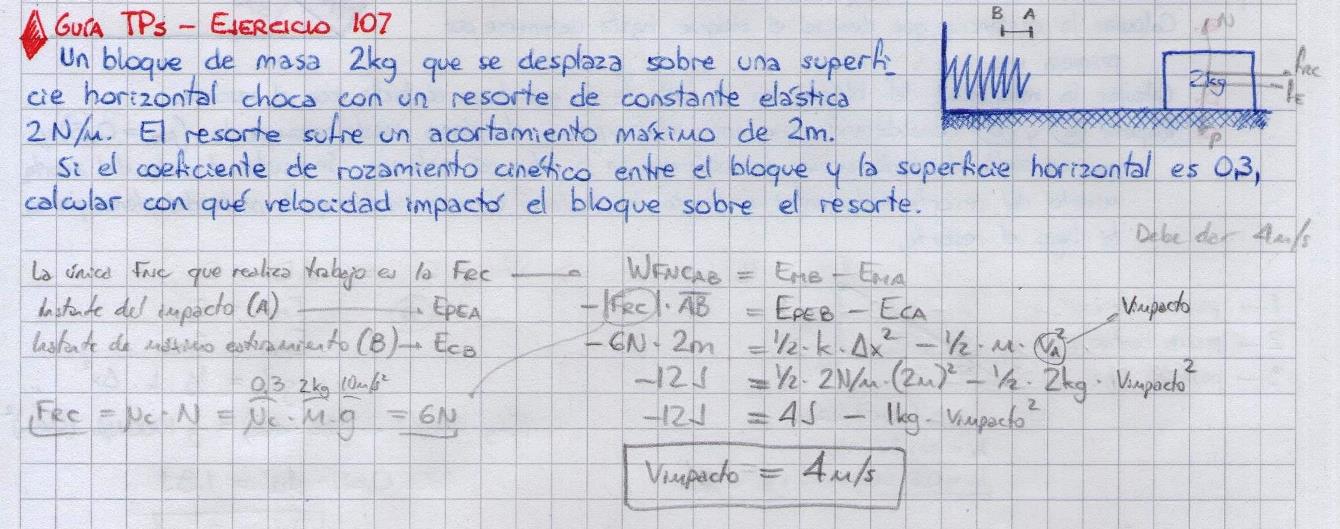 GUÍA TPs - EJERCICIO 107
Un bloque de masa 2kg que se desplaza sobre una superfi-
cie horizontal choca con un resorte de constante elástica
2N/m. El resorte sufre un acortamiento máximo de 2m.
Si el coeficiente de rozamiento cinético entre el bloque y la superficie horizontal es 0,3,
calcular con qué velocidad impactó el bloque sobre el resorte.
B A
N
2kg
FRC
FE
P
Debe dar 4m/s
La única FNC que realiza trabajo es la FRC
Instante del impacto (A) → EPEA
Instante de máximo estiramiento (B) → ECB
0,3 2kg 10m/s²
FRC = μc · N = μc · m · g = 6N
WFNCAB = EMB - EMA
-|FRC| · AB = EPEB - ECA
Vimpacto
-6N · 2m = 1/2 · k · Δx² - 1/2 · m · VA²
-12J = 1/2 · 2N/m · (2m)² - 1/2 · 2kg · Vimpacto²
-12J = 4J - 1kg · Vimpacto²
Vimpacto = 4m/s